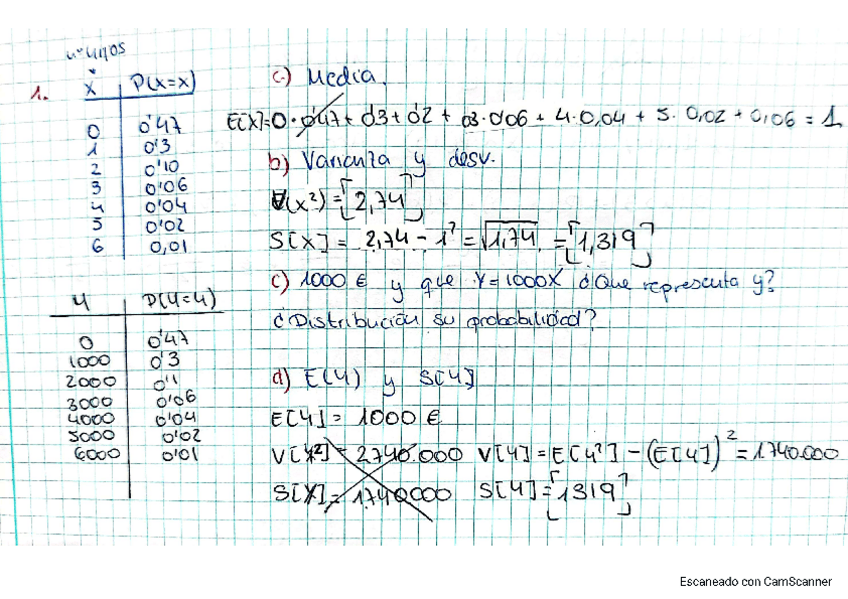 nº unos
1. X P(X=x)
0 0'47
1 0'3
2 0'10
3 0'06
4 0'04
5 0'02
6 0,01
Y P(Y=y)
0 0'47
1000 0'3
2000 0'1
3000 0'06
4000 0'04
5000 0'02
6000 0'01
c) Media.
E[X]=0·0'47+0'3+0'2+03·0'06+4·0,04+5·0,02+0,06=1
b) Varianza y desv.
V(x²)=[2,74]
S[X]=2,74-1²=√1,74=[1,319]
c) 1000 € y que Y=1000X ¿Que representa y?
¿Distribución su probabilidad?
d) E(Y) y S[Y]
E[Y]=1000 €
V[Y²]=2740.000 V[Y]=E[Y²]-(E[Y])²=1740.000
S[Y]=1740000 S[Y]=[1319]
Escaneado con CamScanner